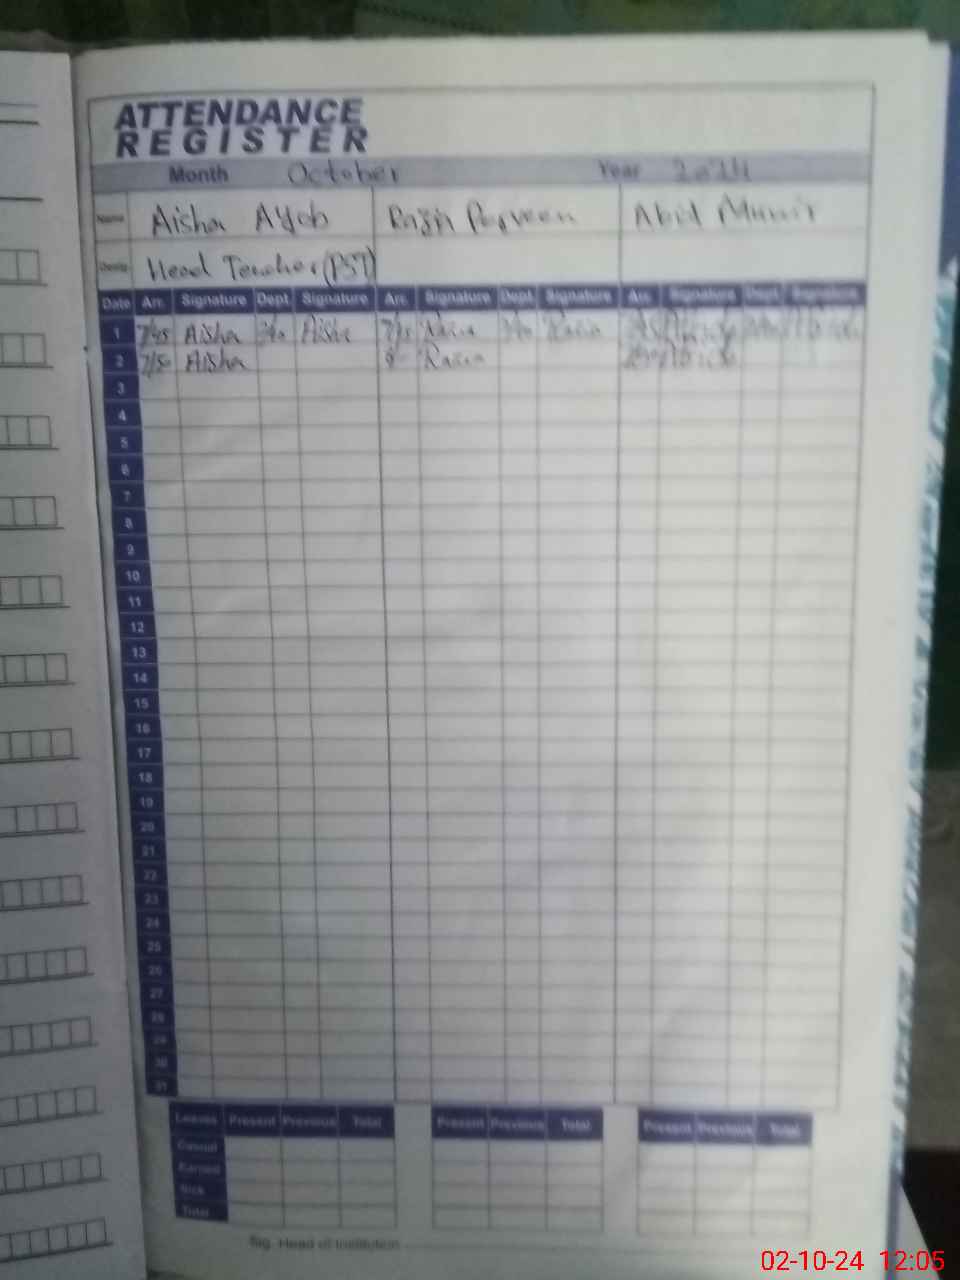 ATTENDANCE
REGISTER
Month October Year 2024
Name Aisha Ayob Parveen Abid Munir
Desig Head Teacher (PST)
Date Arr. Signature Dept. Signature Arr. Signature Dept. Signature Arr. Signature Dept. Signature
1 7/45 Aisha Aisha 7/45 Razia Razia
2 7/50 Aisha 8 Razia
3
4
5
6
7
8
9
10
11
12
13
14
15
16
17
18
19
20
21
22
23
24
25
26
27
28
29
30
31
Leaves Present Previous Total Present Previous Total Present Previous Total
Casual
Earned
Sick
Total
Sig. Head of Institution
02-10-24 12:05